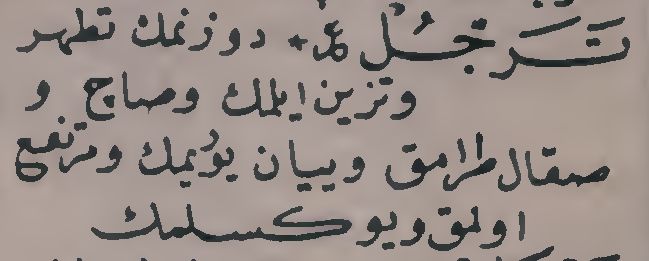 تَرَجُّل ع دوزنمك تطهر
وتزين ايلمك وصاچ و
صقال طرامق وييان يوُريمك ومرتفع
اولمق ويوكسلمك